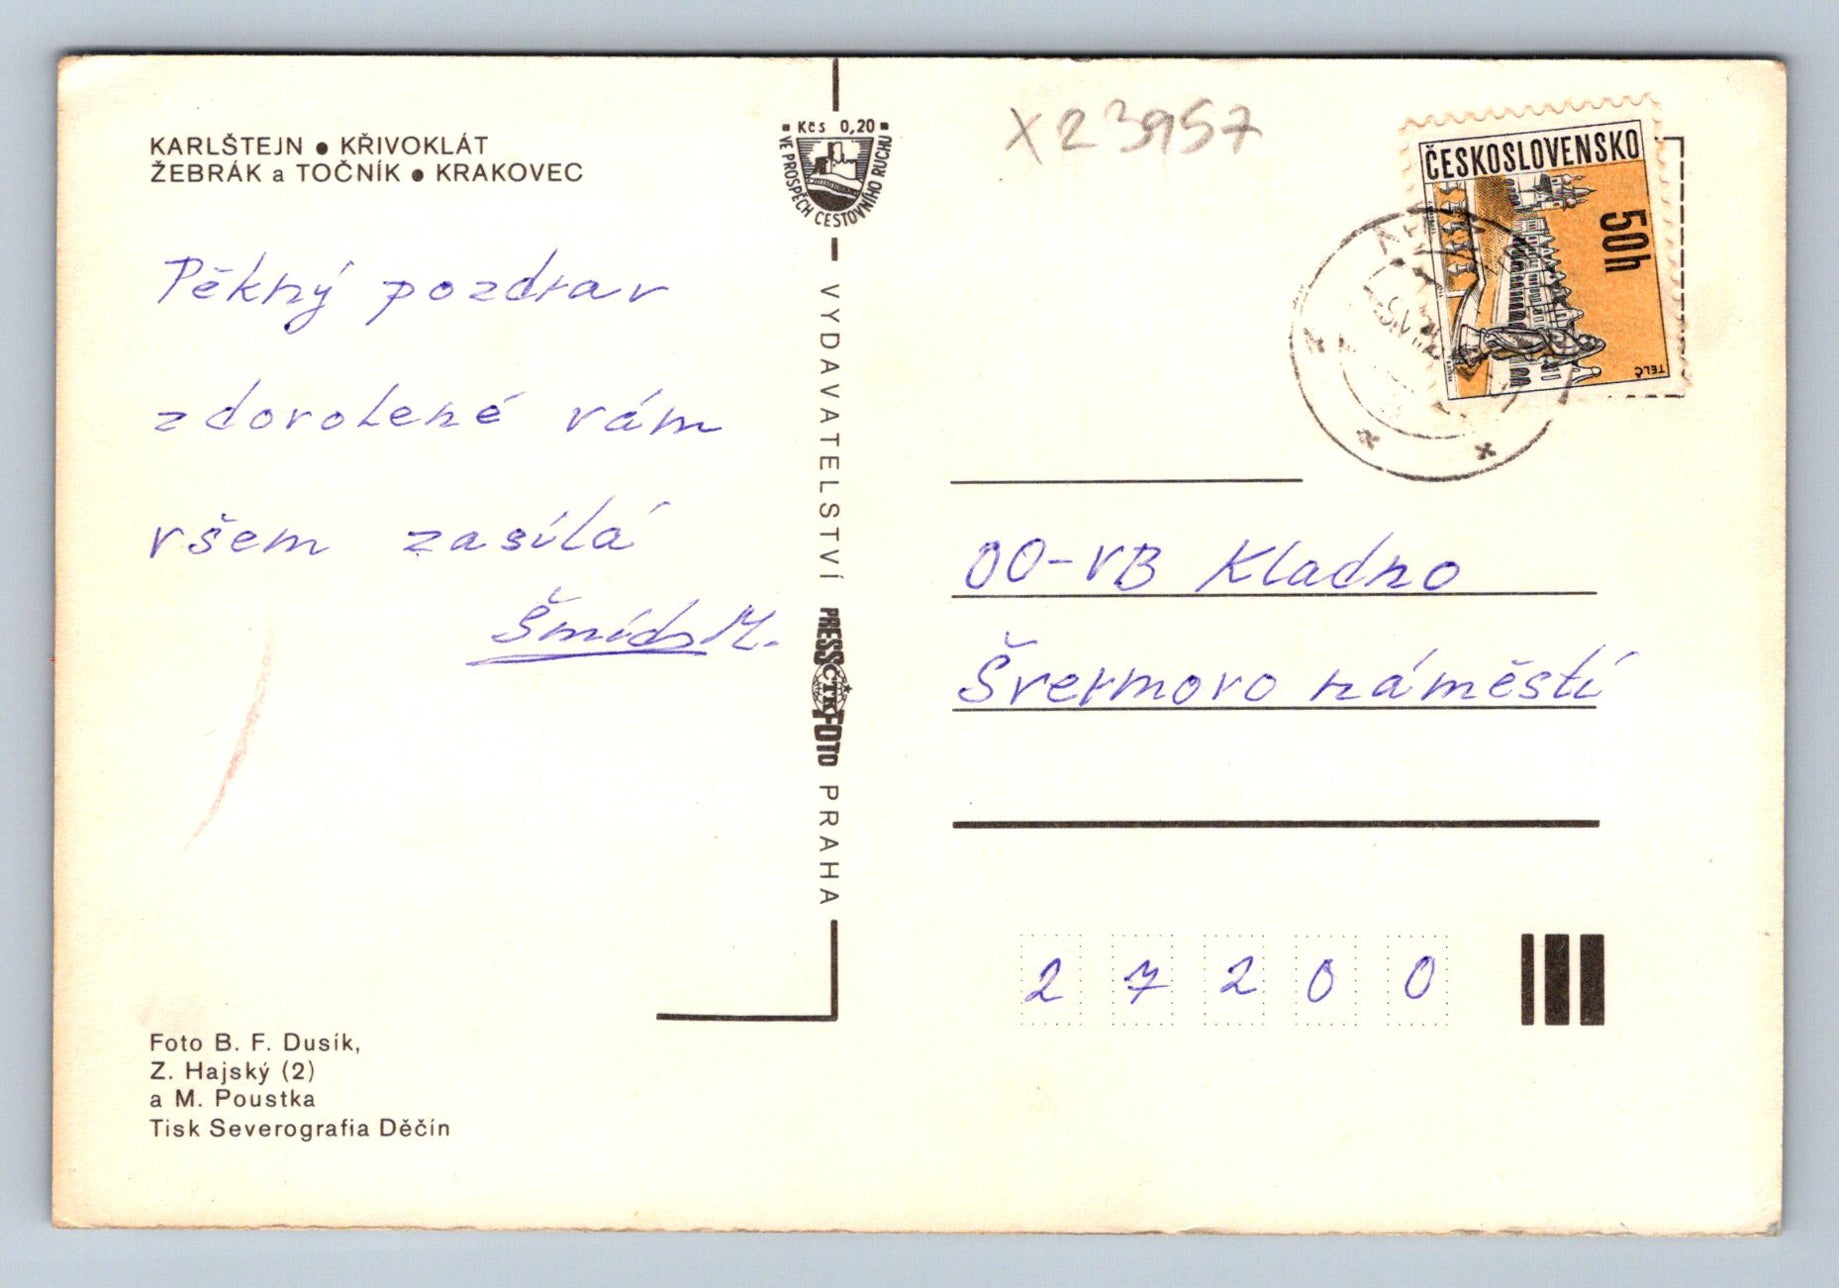 KARLŠTEJN ● KŘIVOKLÁT
ŽEBRÁK a TOČNÍK ● KRAKOVEC
Pěkný pozdrav
z dovolené vám
všem zasílá
Šmíds M.
Foto B. F. Dusík,
Z. Hajský (2)
a M. Poustka
Tisk Severografia Děčín
Kčs 0,20
VE PROSPĚCH CESTOVNÍHO RUCHU
VYDAVATELSTVÍ PRESSFOTO PRAHA
ČTK
X23957
ČESKOSLOVENSKO
50h
TELČ
OO-VB Kladno
Švermovo náměstí
27200